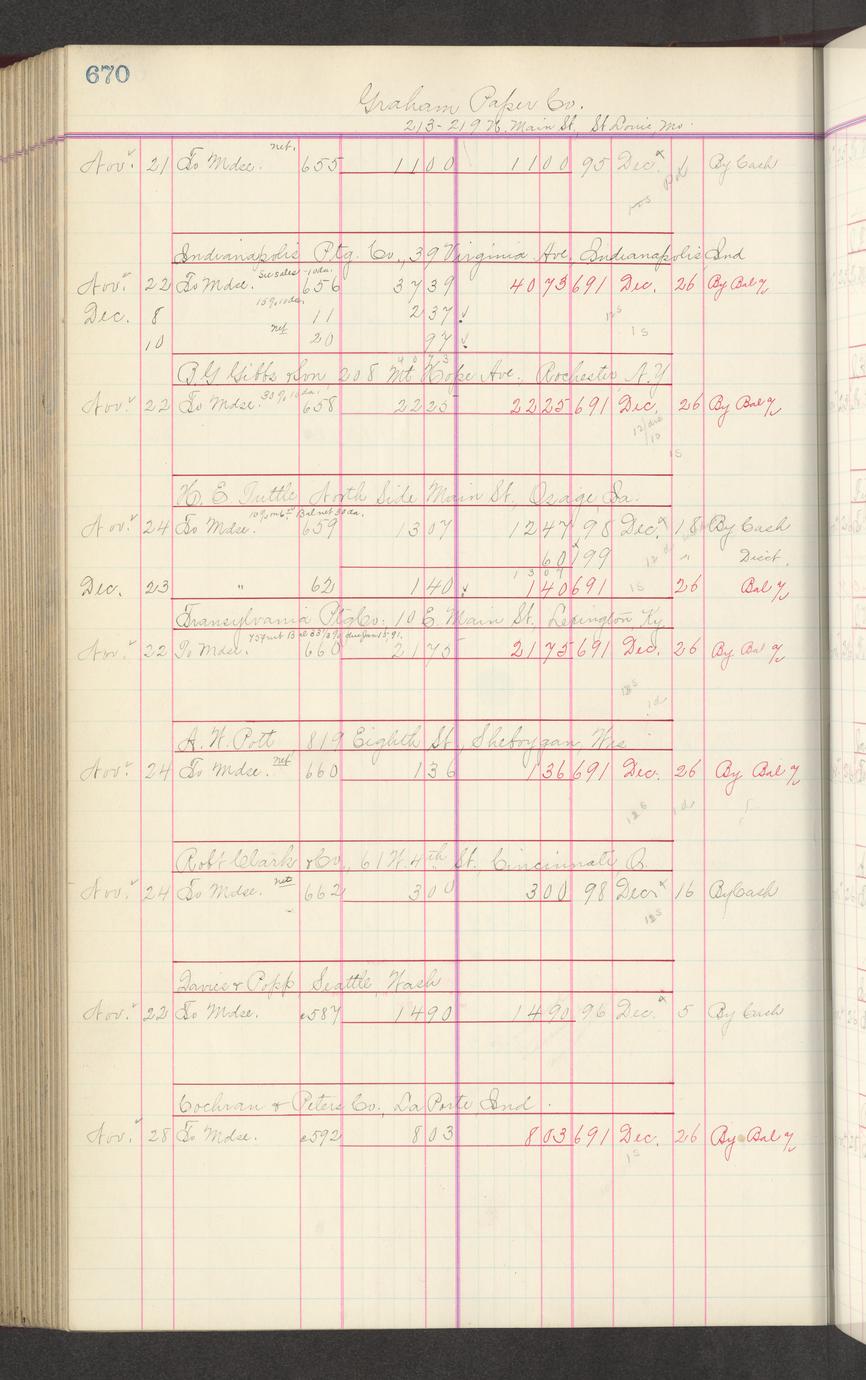 670
Graham Paper Co.
213-219 N. Main St., St Louis, Mo.
net.
Nov. 21 To Mdse. 655 1100 1100 95 Dec. 1 By Cash
Indianapolis Ptg. Co., 39 Virginia Ave. Indianapolis, Ind
10 da.
Nov. 22 To Mdse. 656 3739 4073 691 Dec. 26 By Bal
15% 10 da.
Dec. 8 11 237 ✓
10 net 20 97 ✓
4073
B G Gibbs & Son 208 Mt Hope Ave., Rochester, N.Y
30% 10 da.
Nov. 22 To Mdse. 658 2225 2225 691 Dec. 26 By Bal
H. E Tuttle North Side Main St. Osage, Ia.
Bal net 30 da.
Nov. 24 To Mdse. 659 1307 1247 98 Dec. 18 By Cash
60 199 " Disct.
1307
Dec. 23 " 62 140 ✓ 140 691 26 Bal
Transylvania Ptg Co. 10 E. Main St., Lexington Ky
Nov. 22 To Mdse. 660 2175 2175 691 Dec. 26 By Bal
A. W. Pott 819 Eighth St., Sheboygan, Wis
Nov. 24 To Mdse. net 660 136 136 691 Dec. 26 By Bal
Robt Clark & Co., 61 W. 4th St. Cincinnati O.
Nov. 24 To Mdse. net 662 300 300 98 Dec. 16 By Cash
Davies & Popp, Seattle, Wash
Nov. 22 To Mdse. c587 1490 1490 96 Dec. 5 By Cash
Cochran & Peters Co., La Porte Ind.
Nov. 28 To Mdse. c592 803 803 691 Dec. 26 By Bal